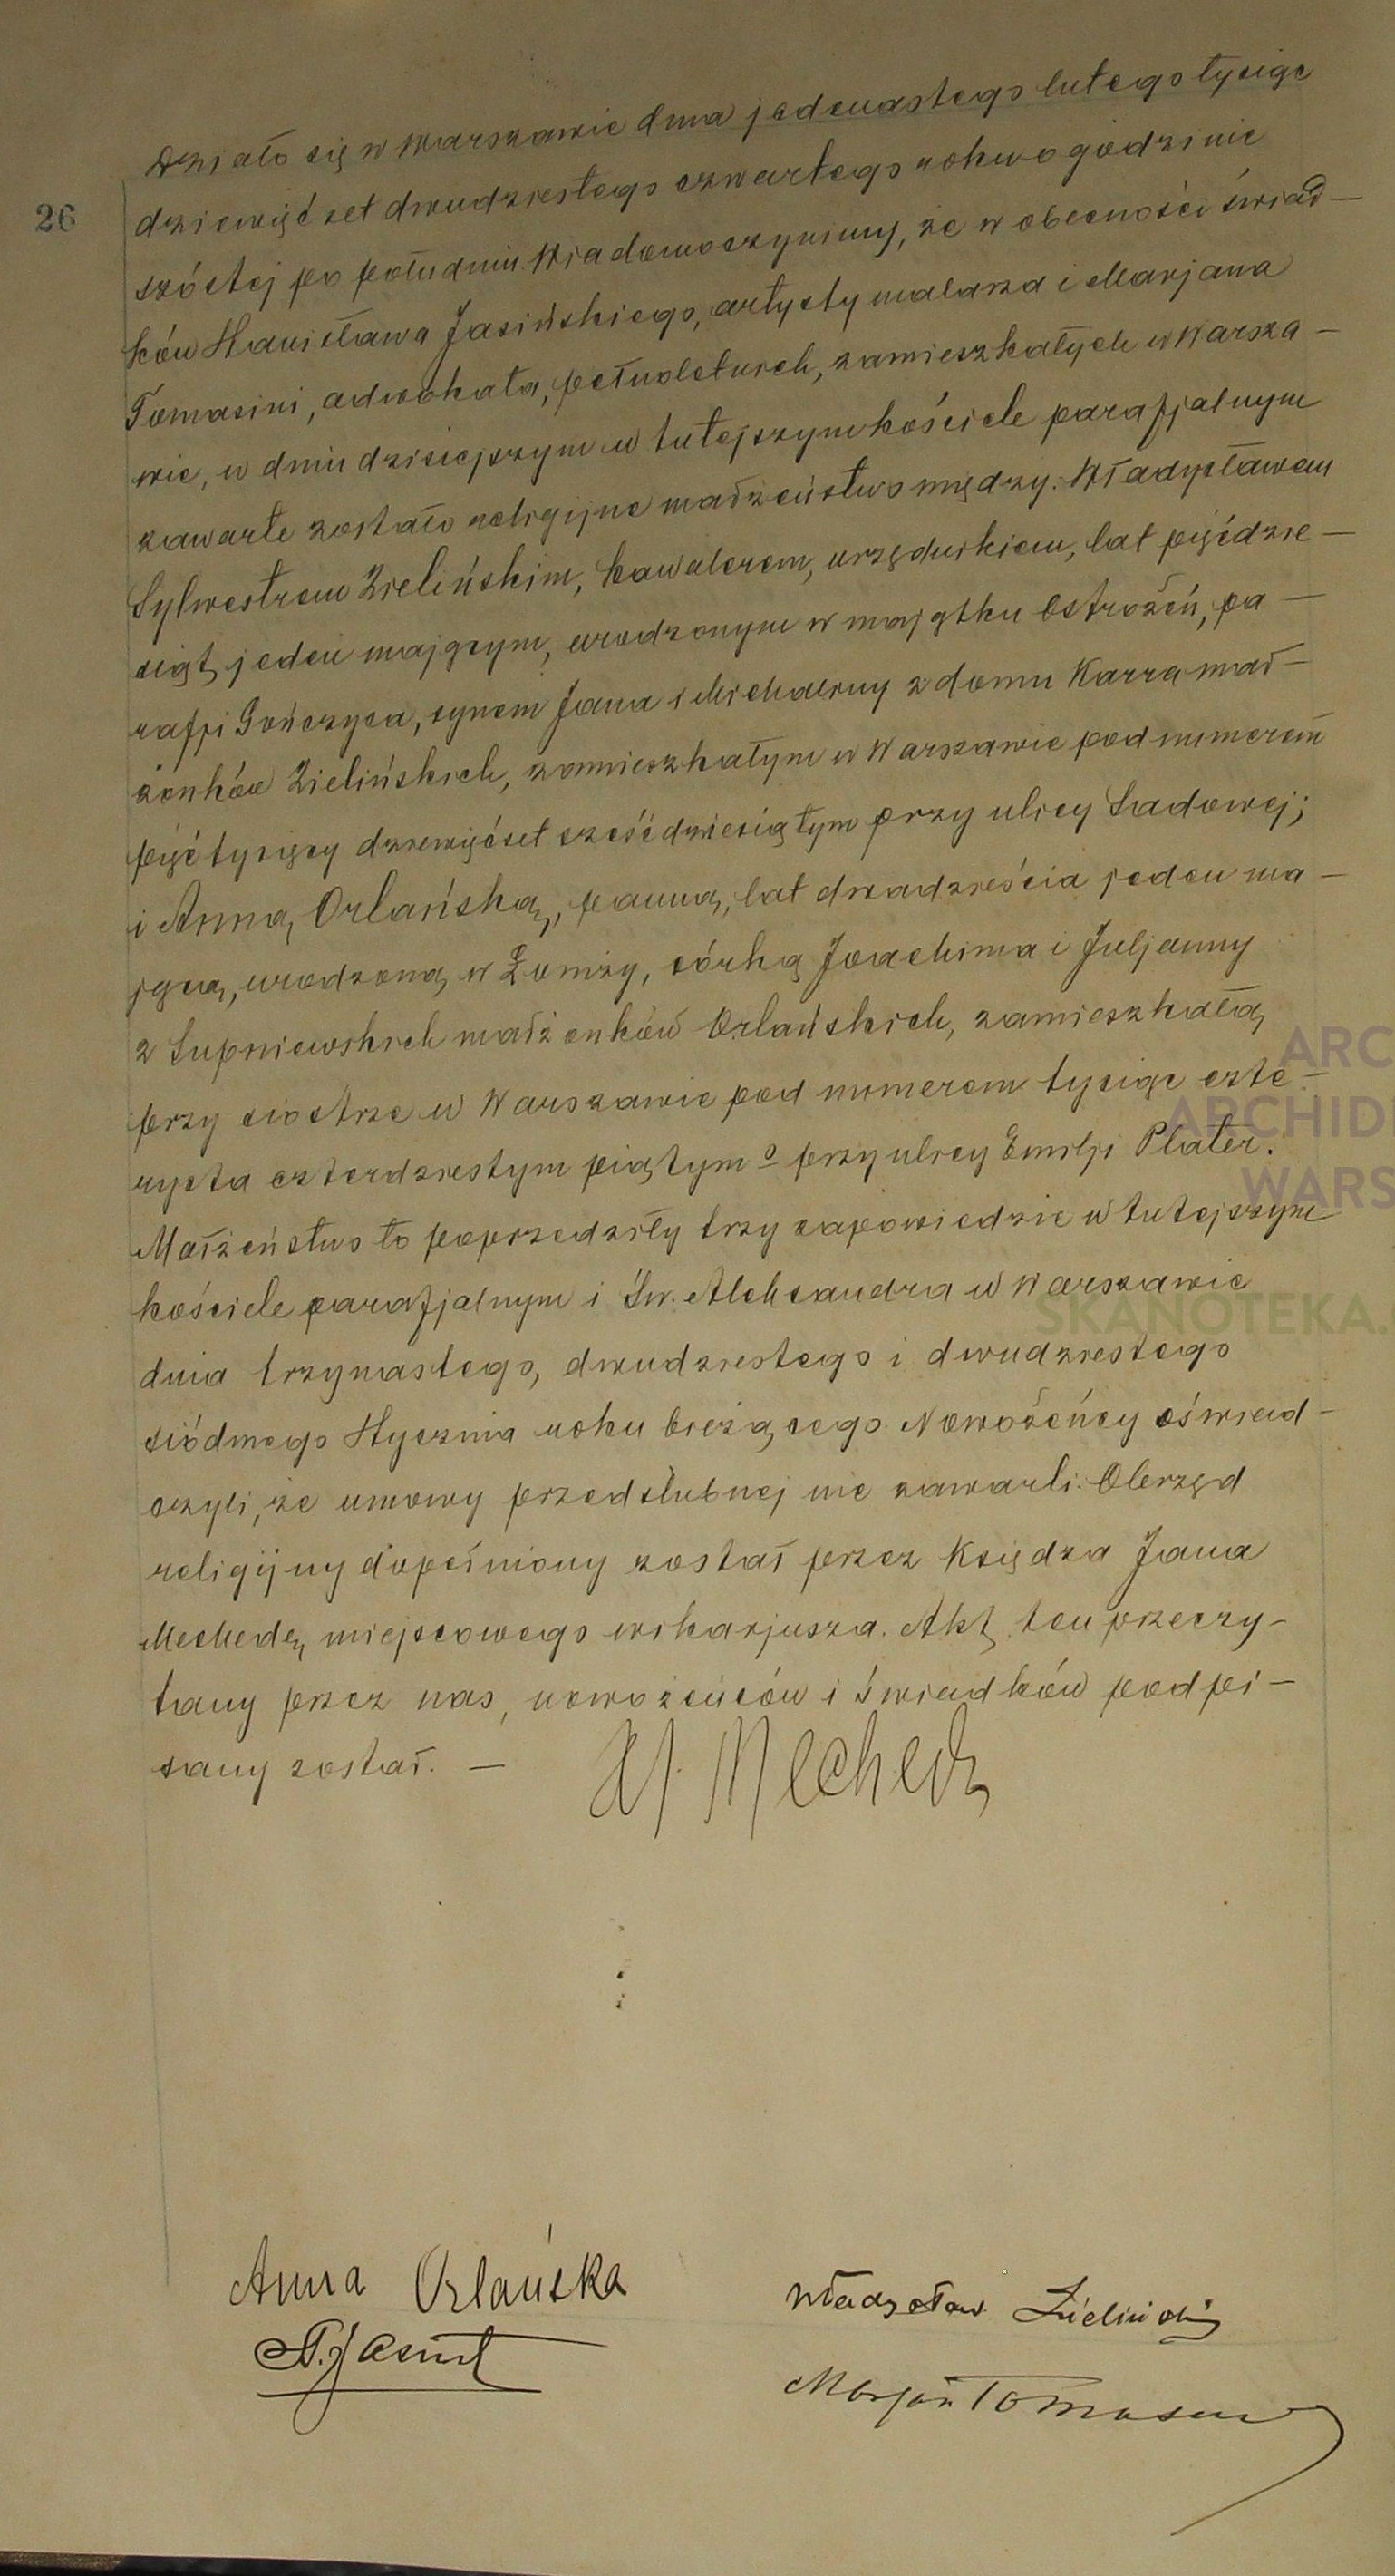 Działo się w Warszawie dnia jedenastego lutego tysiąc
26
dziewięćset dwudziestego czwartego roku o godzinie
szóstej po południu. Wiadomo czynimy, że w obecności świad—
ków Stanisława Jasińskiego, artysty malarza i Marjana
Tomasini, adwokata, pełnoletnich, zamieszkałych w Warsza—
wie, w dniu dzisiejszym w tutejszym kościele parafjalnym
zawarte zostało religijne małżeństwo między: Władysławem
Sylwestrem Zielińskim, kawalerem, urzędnikiem, lat pięćdzie—
siąt jeden mającym, urodzonym w majątku Ostrożeń, pa—
rafji Gończyca, synem Jana i Michaliny z domu Karra mał—
żonków Zielińskich, zamieszkałym w Warszawie pod numerem
pięć tysięcy dziewięćset sześćdziesiątym przy ulicy Sadowej;
i Anną Orlańską, panną, lat dwadzieścia jeden ma—
jącą, urodzoną w Łomży, córką Joachima i Juljanny
z Supniewskich małżonków Orlańskich, zamieszkałą
przy siostrze w Warszawie pod numerem tysiąc czte—
rysta czterdziestym piątym o przy ulicy Emilji Plater.
Małżeństwo to poprzedziły trzy zapowiedzie w tutejszym
kościele parafjalnym i Św. Aleksandra w Warszawie
dnia trzynastego, dwudziestego i dwudziestego
siódmego Stycznia roku bieżącego. Nowożeńcy oświad—
czyli, że umowy przedślubnej nie zawarli. Obrzęd
religijny dopełniony został przez Księdza Jana
Mechedę, miejscowego wikarjusza. Akt ten przeczy—
tany przez nas, nowożeńców i świadków podpi—
sany został. — X J. Mecheda
Anna Orlańska
Władysław Zieliński
St. Jasiński
Marjan Tomasini
ARC
ARCHIDI
WARS
SKANOTEKA.